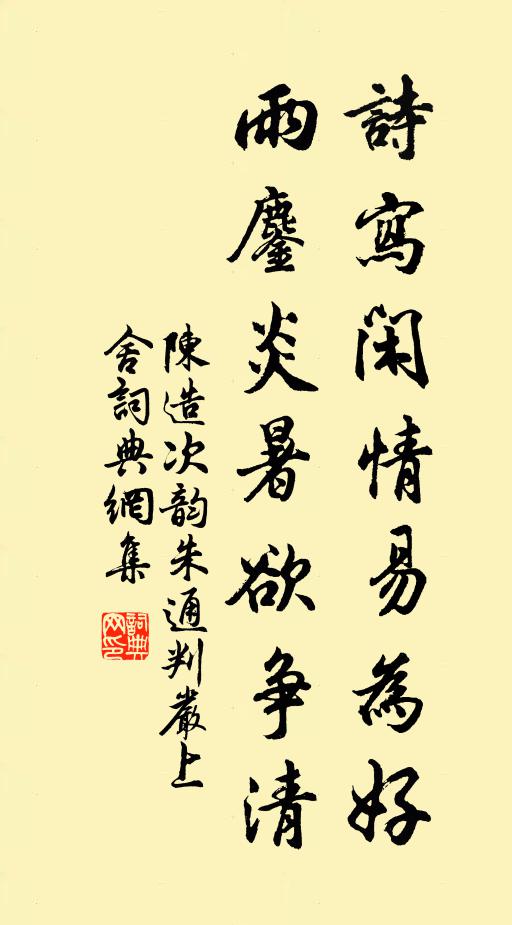 詩寫閑情易為好
雨鏖炎暑欲争清
陳造次韵朱通判嚴上
舍詞典網集
詞典网印